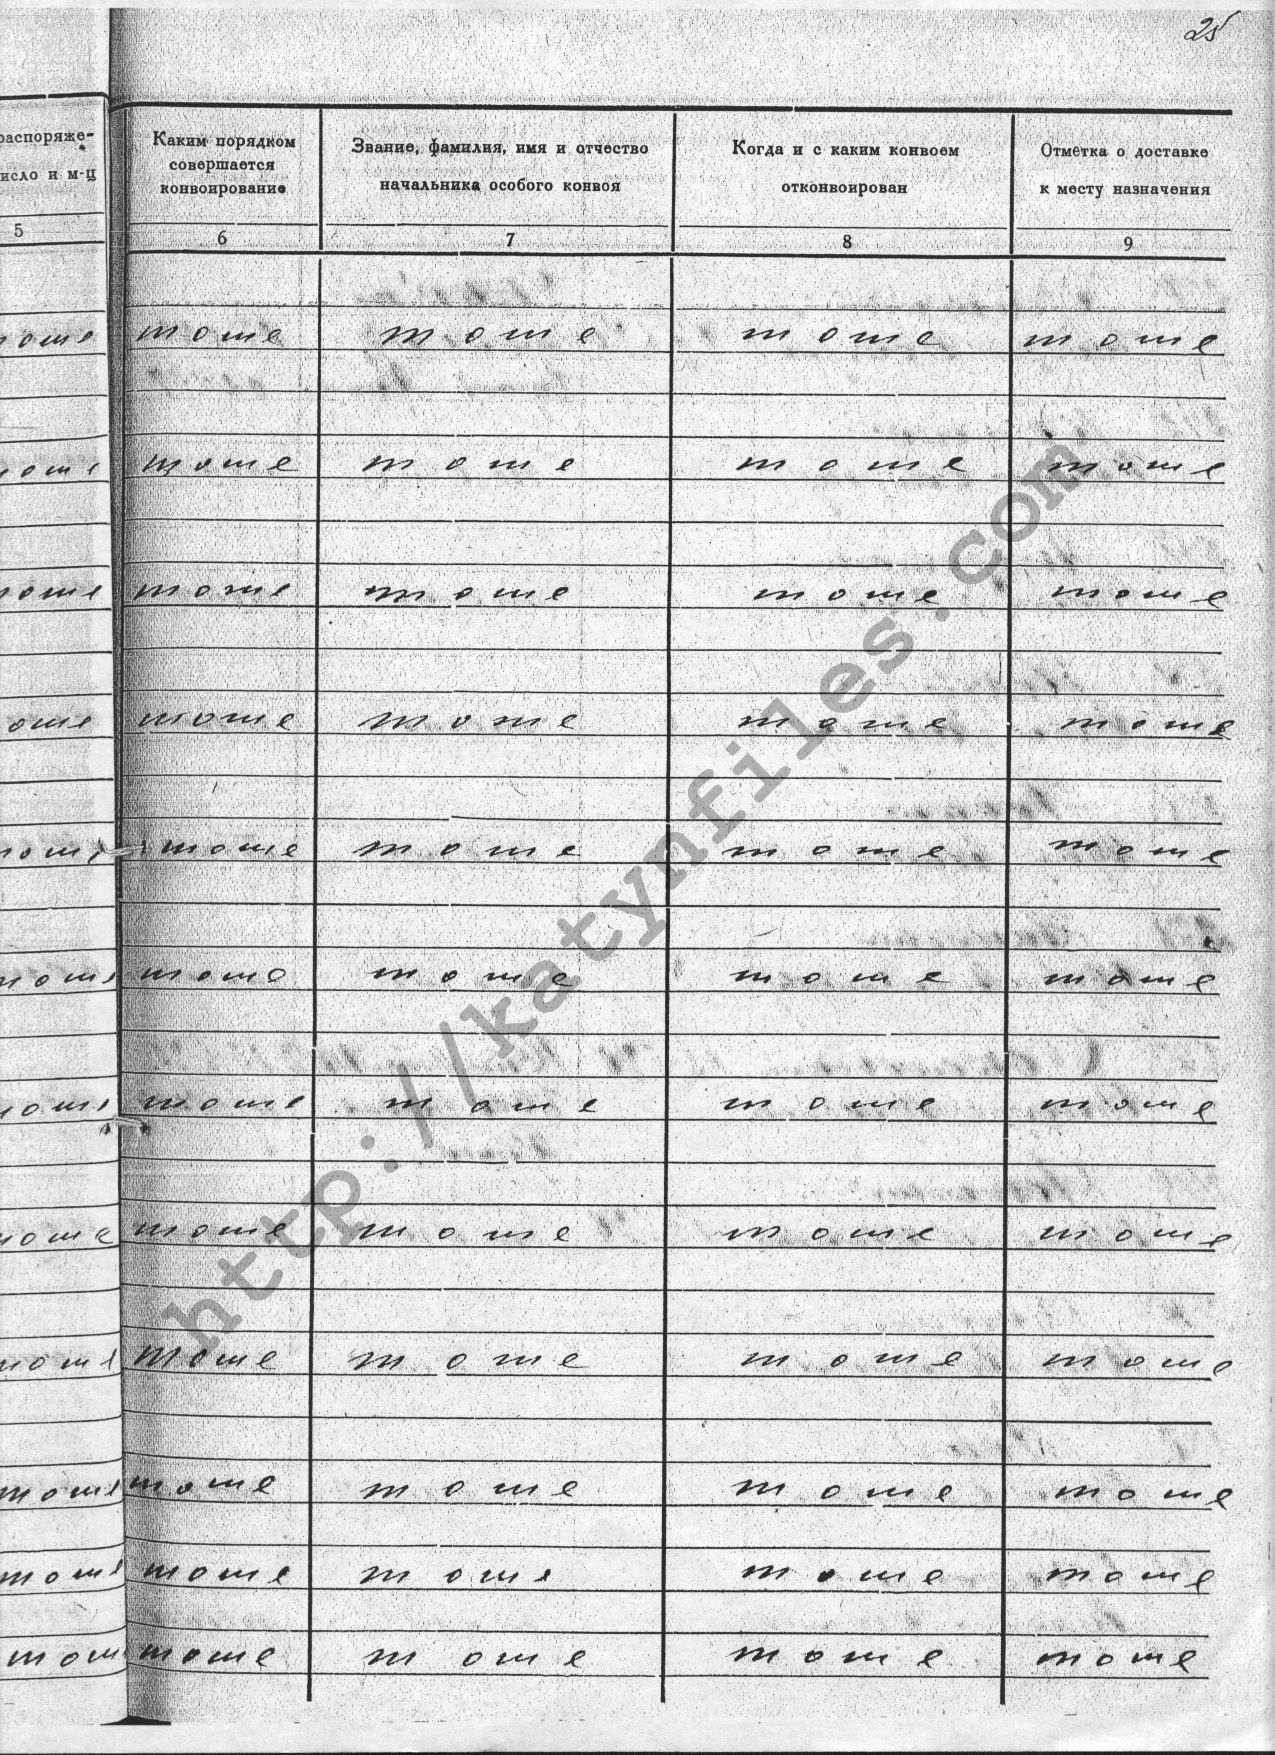 25
распоряже-
исло и м-ц
5
Каким порядком
совершается
конвоирование
6
Звание, фамилия, имя и отчество
начальника особого конвоя
7
Когда и с каким конвоем
отконвоирован
8
Отметка о доставке
к месту назначения
9
тоже тоже тоже тоже тоже
тоже тоже тоже тоже тоже
тоже тоже тоже тоже тоже
оже тоже тоже тоже тоже
тоже тоже тоже тоже тоже
тоже тоже тоже тоже тоже
тоже тоже тоже тоже тоже
тоже тоже тоже тоже тоже
тоже тоже тоже тоже тоже
тоже тоже тоже тоже тоже
тоже тоже тоже тоже тоже
тоже тоже тоже тоже тоже
http://katynfiles.com